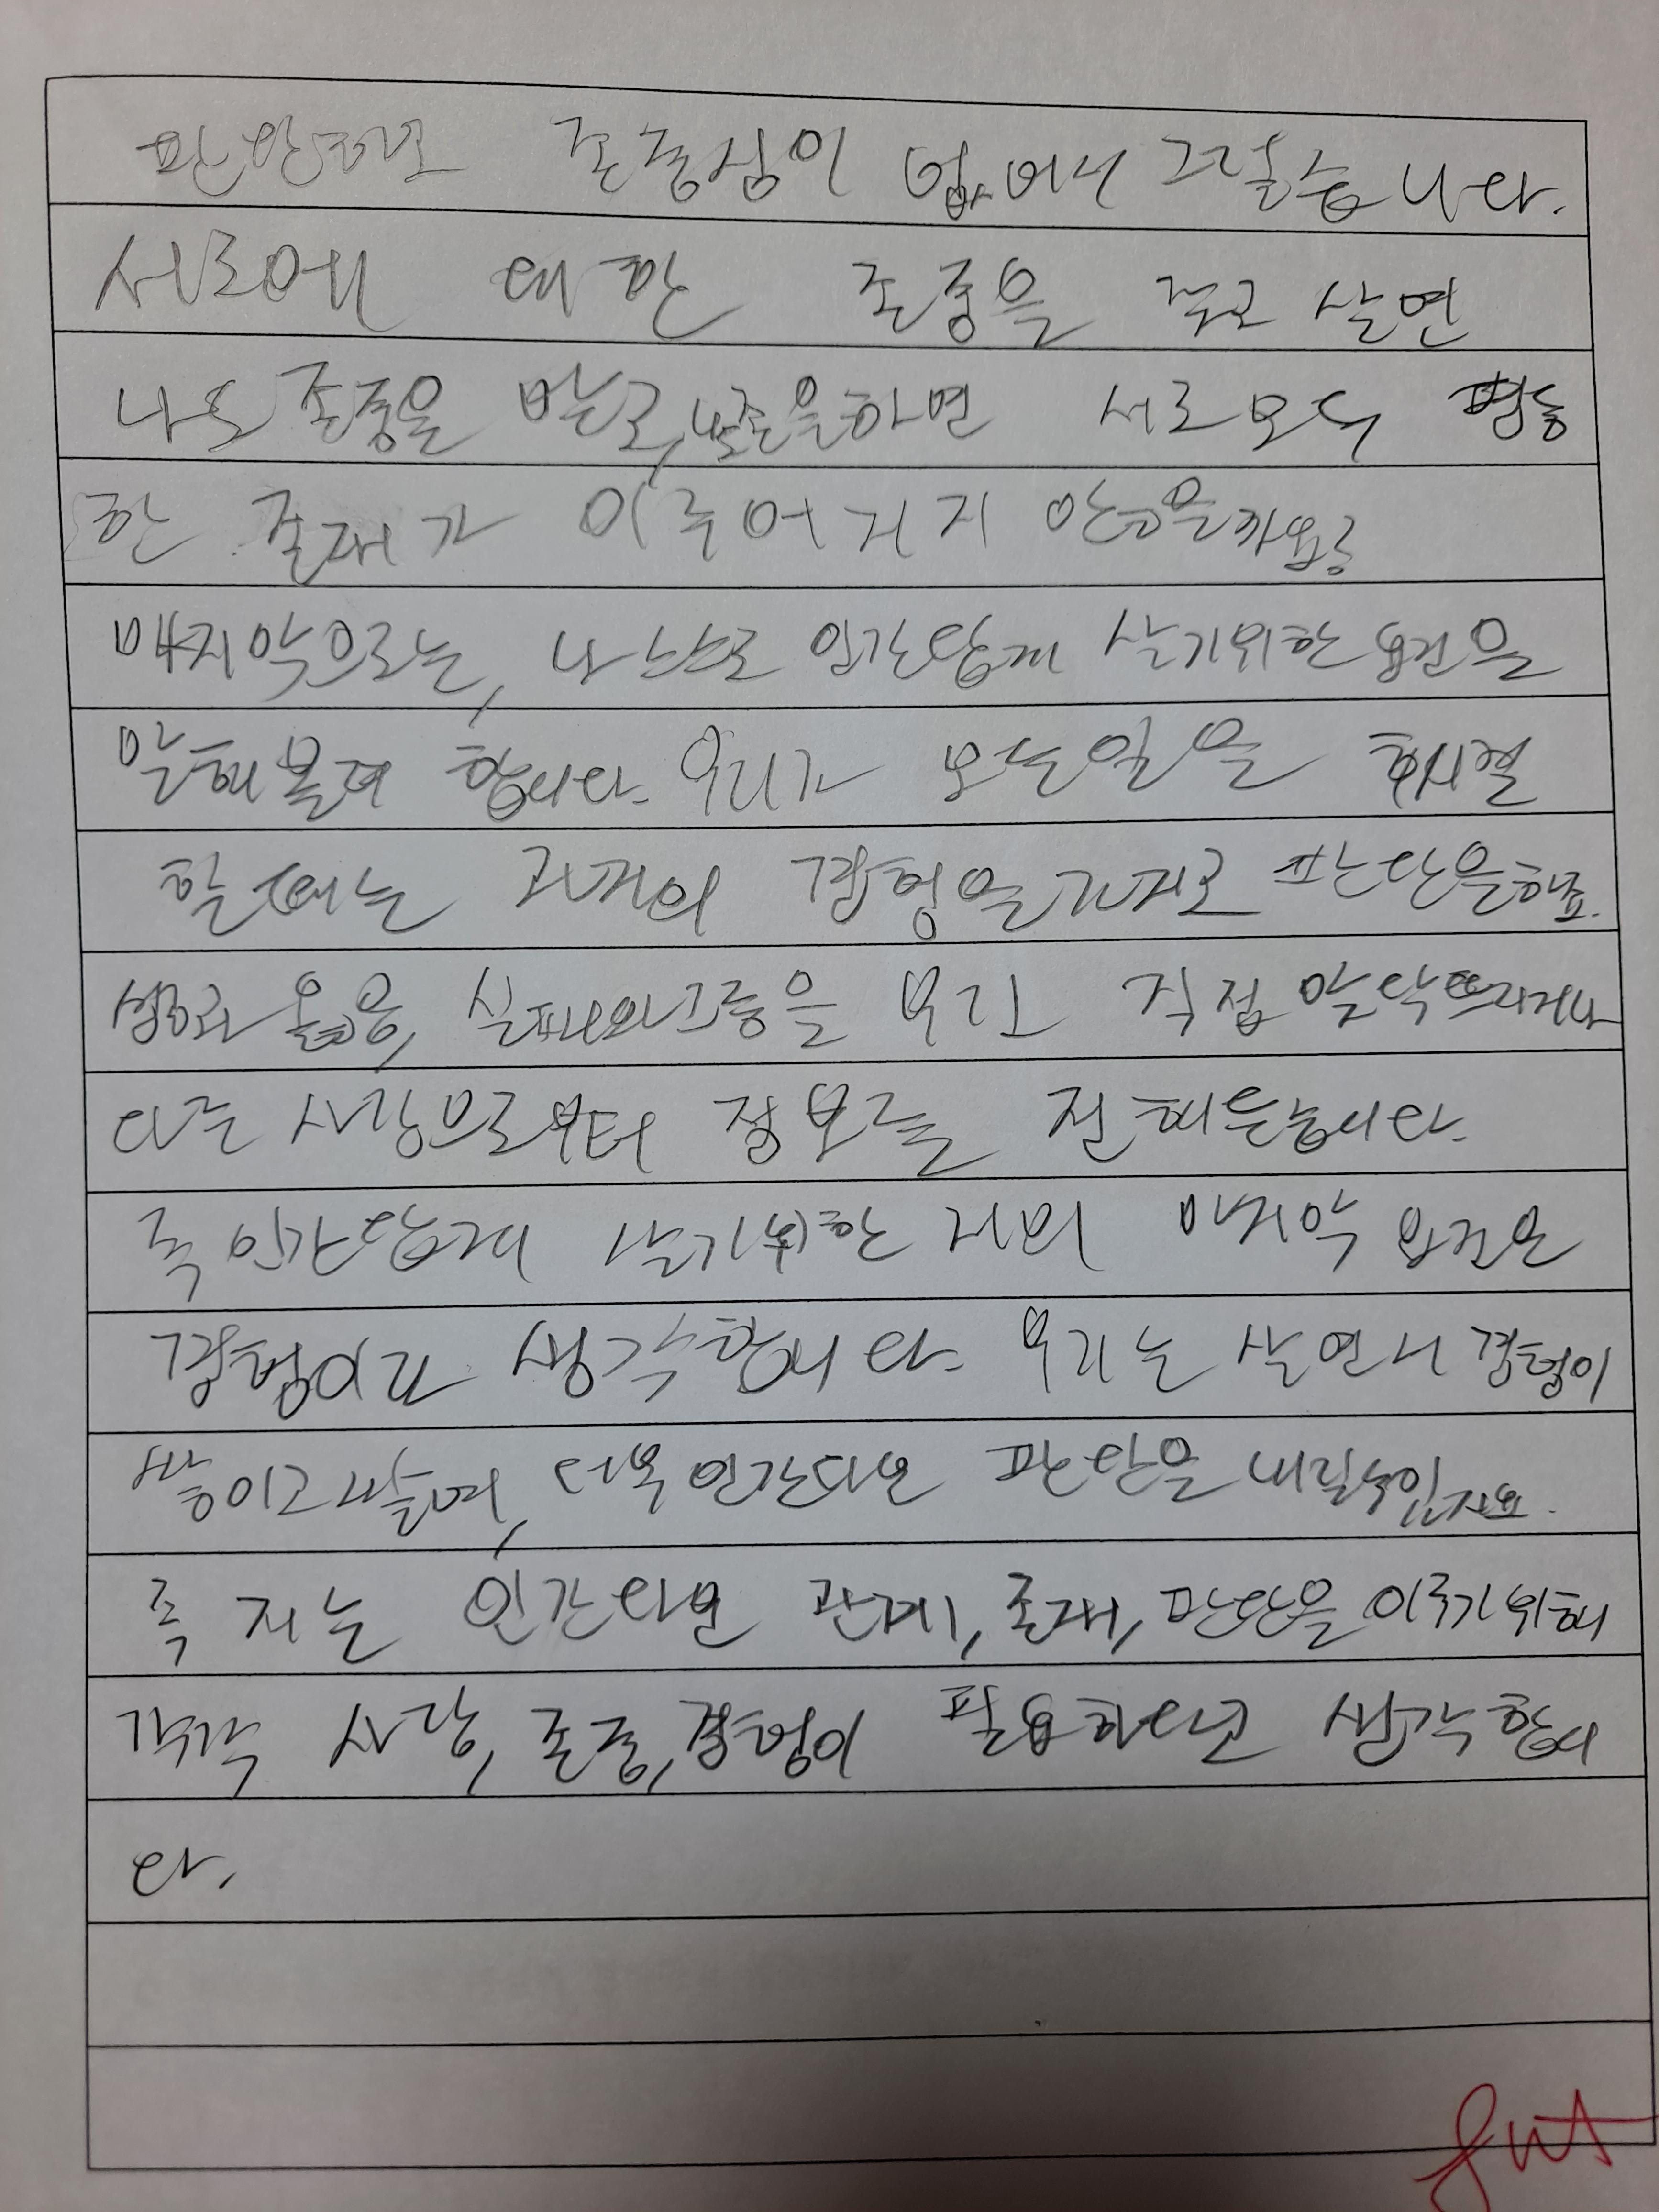 존중심이 없어서 그렇습니다.
서로에 대한 존중을 갖고 살면
나도 존중을 받고, 하면 서로 모두 평등
한 존재가 이루어지지 않을까요?
마지막으로는, 나 스스로 인간답게 살기위한 요건을
말해볼려 합니다. 우리가 모든일을
할때는 과거의 경험을 가지고 판단을하죠.
실패와 고통을 우리 직접 맞닥뜨리거나
다른 사람으로부터 정보를 전해듣습니다.
즉 인간답게 살기위한 저의 마지막 요건은
경험이라 생각합니다. 우리는 살면서 경험이
쌓이고 쌓여, 더욱 인간다운 판단을 내릴수있지요.
즉 저는 인간다운 관계, 존재, 판단을 이루기위해
각각 사랑, 존중, 경험이 필요하다고 생각합니
다.